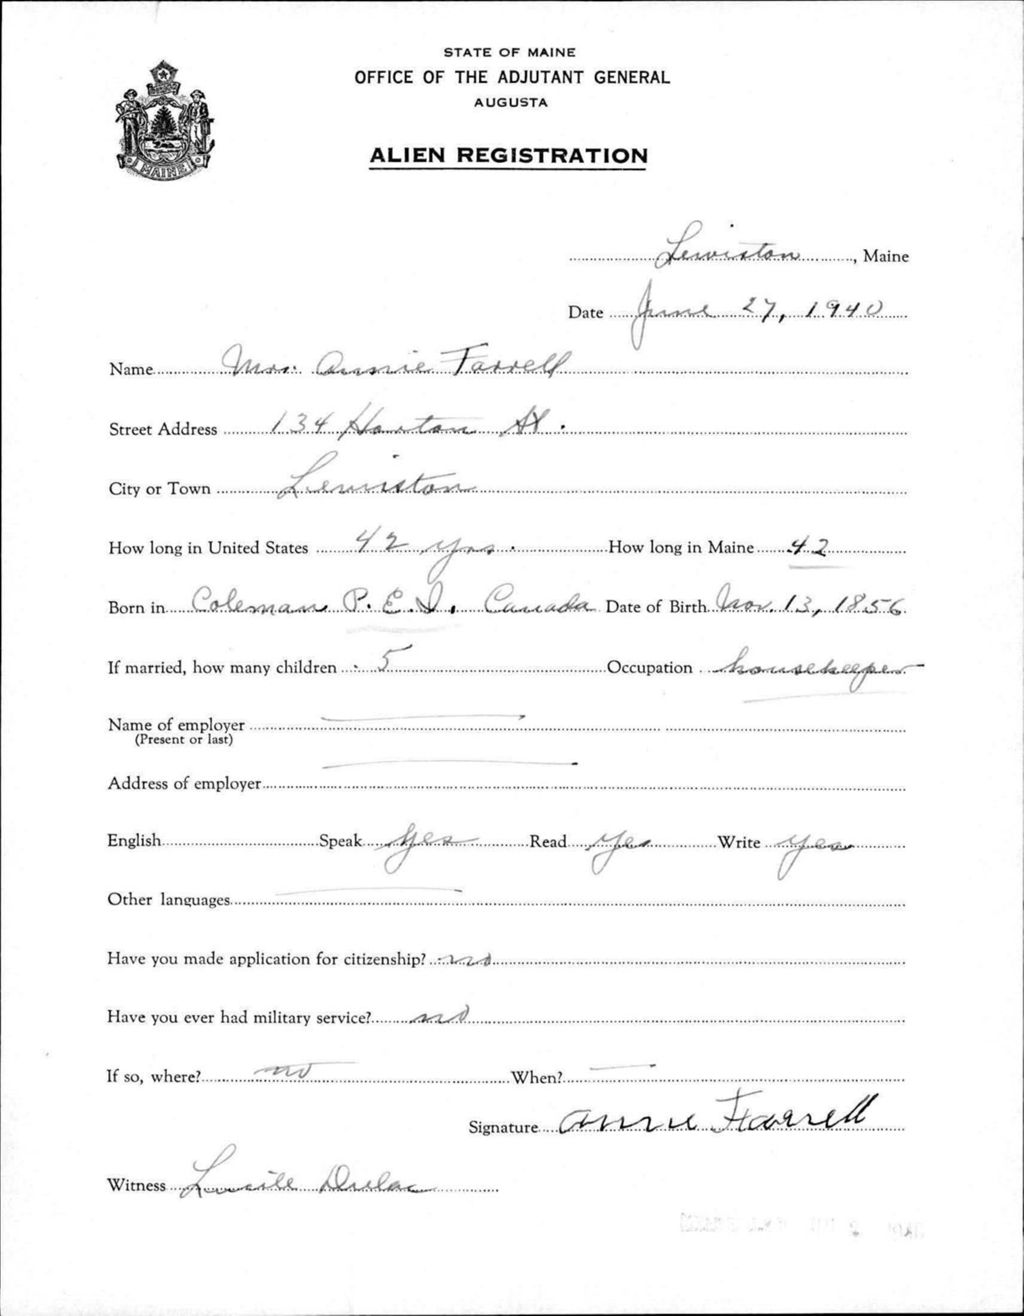 STATE OF MAINE
OFFICE OF THE ADJUTANT GENERAL
AUGUSTA
ALIEN REGISTRATION
MAINE
Lewiston, Maine
Date June 27, 1940
Name Mrs. Annie Farrell
Street Address 134 Horton St.
City or Town Lewiston
How long in United States 42 yrs. How long in Maine 42
Born in Coleman P.E.I. Canada Date of Birth Nov. 13, 1856
If married, how many children 5 Occupation housekeeper
Name of employer
(Present or last)
Address of employer
English Speak yes Read yes Write yes
Other languages
Have you made application for citizenship? no
Have you ever had military service? no
If so, where? no When?
Signature Annie Farrell
Witness Lucille Dulac